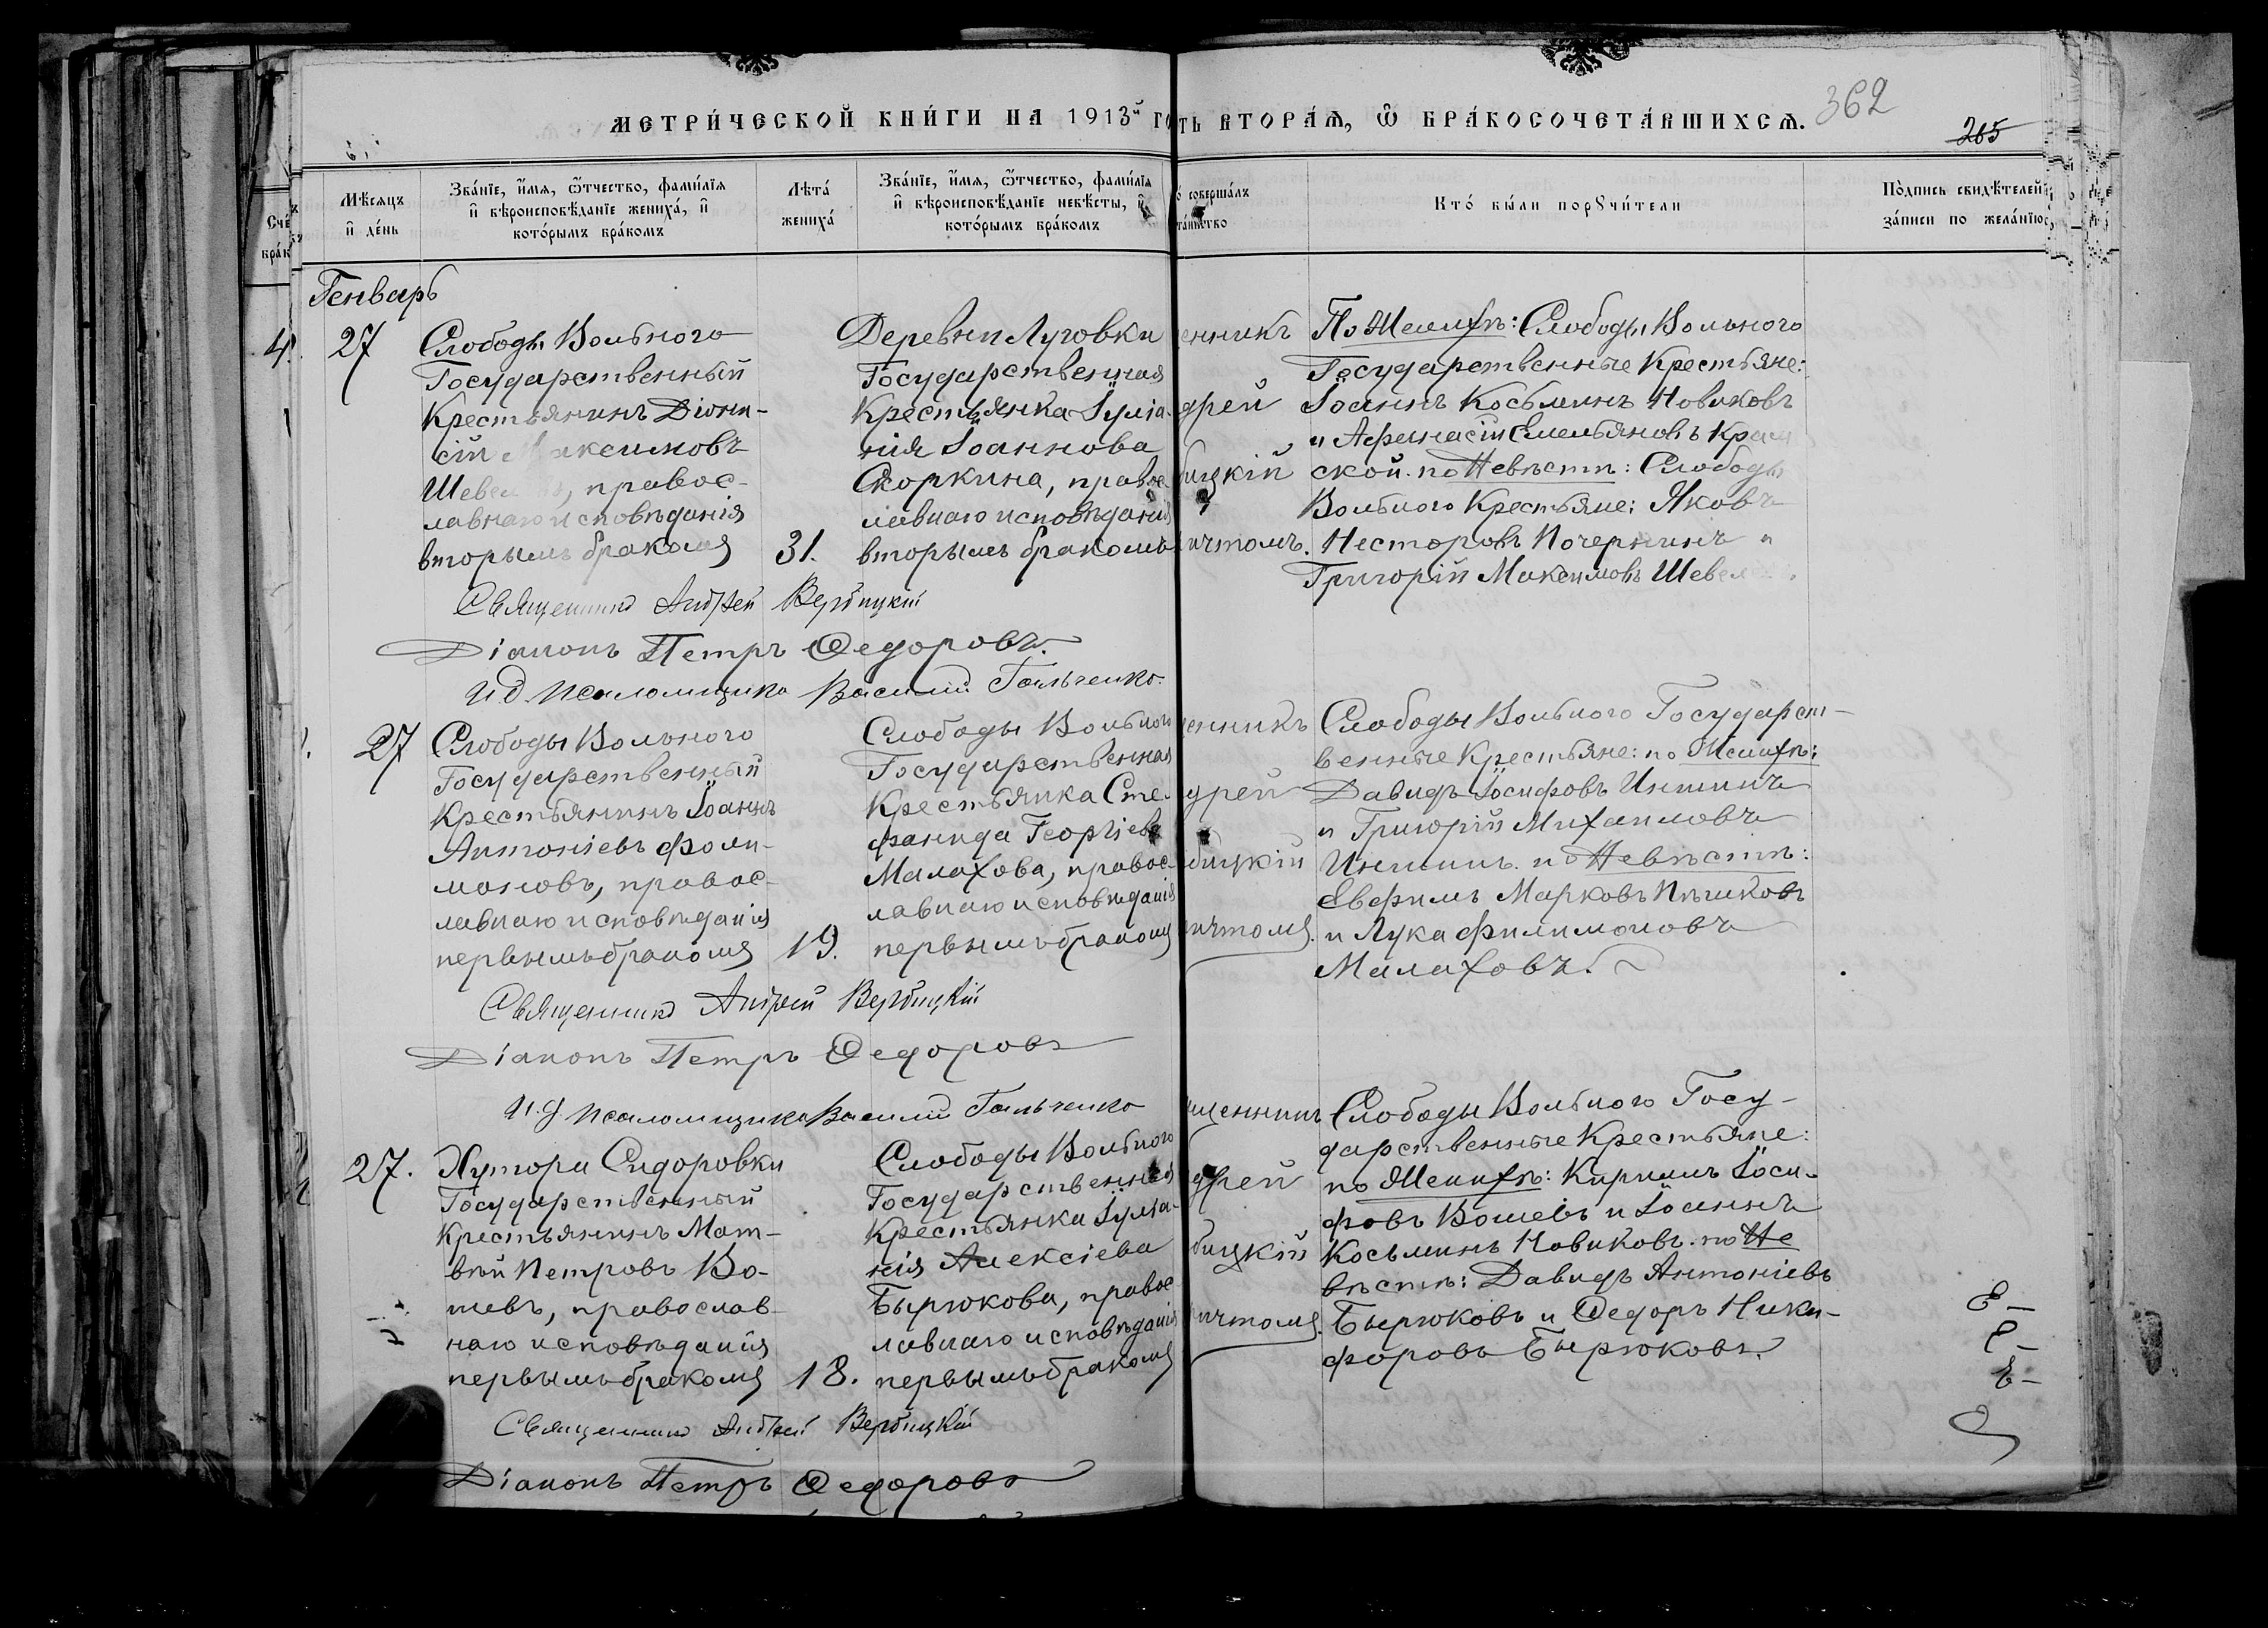 МЕТРИ́ЧЕСКОЙ КНИ́ГИ НА 1913й ГО
ТЬ ВТОРА́Ѧ, Ѽ БРА́КОСОЧЕТА́ВШИХСѦ.
362
265
Мѣ́сяцъ
и҆ де́нь
Зва́нїе, и҆́мя, ѻ҆́тчество, фами́лїя
и҆ вѣроисповѣ́данїе жениха́, и҆
кото́рымъ бра́комъ
Лѣта́
жениха́
Зва́нїе, и҆́мя, ѻ҆́тчество, фами́лїя
и҆ вѣроисповѣ́данїе невѣ́сты, и҆
кото́рымъ бра́комъ
соверша́лъ
Кто́ бы́ли порꙋчи́тели
По́дпись свидѣ́телей
за́писи по жела́нїю
Генварь
4.
27
Слободы Вольного
Государственный
Крестьянинъ Діони-
сій Максимовъ
Шеве , правос-
лавнаго исповѣданія
вторымъ бракомъ
31.
Деревни Луговки
Государственная
Крестьянка Іуліа-
нія Іоаннова
Скоркина, правос-
лавнаго исповѣданія
вторымъ бракомъ
енникъ
дрей
бицкій
ичтомъ.
По Женихѣ: Слободы Вольного
Государственные Крестьяне:
Іоаннъ Косьминъ Новиковъ
и Афанасій Емельяновъ Крам
ской. по Невѣстѣ: Слободы
Вольного Крестьяне: Яковъ
Несторовъ Почернинъ и
Григорій Максимовъ Шевел
Священникъ Андрей Вербицкій
Діаконъ Петръ Ѳедоровъ.
И.д. псаломщика Василій Гальченко.
27
Слободы Вольного
Государственный
Крестьянинъ Іоаннъ
Антоніевъ Фоли-
моновъ, правос-
лавнаго исповѣданія
первымъ бракомъ
19.
Слободы Вольного
Государственная
Крестьянка Сте-
фанида Георгіева
Малахова, правос-
лавнаго исповѣданія
первымъ бракомъ
енникъ
дрей
бицкій
ичтомъ.
Слободы Вольного Государст-
венные Крестьяне: по Женихѣ:
Давидъ Іосифовъ Иншинъ
и Григорій Михаиловъ
Иншинъ. по Невѣстѣ:
Евфимъ Марковъ Пѣшковъ
и Лука Филимоновъ
Малаховъ.
Священникъ Андрей Вербицкій
Діаконъ Петръ Ѳедоровъ
И.д. псаломщика Василій Гальченко
27.
Хутора Сидоровки
Государственный
Крестьянинъ Мат-
вѣй Петровъ Во-
шевъ, православ-
наго исповѣданія
первымъ бракомъ
18.
Слободы Вольного
Государственная
Крестьянка Іуліа-
нія Алексіева
Бырюкова, правос-
лавнаго исповѣданія
первымъ бракомъ
щенникъ
дрей
бицкій
ичтомъ.
Слободы Вольного Госу-
дарственные Крестьяне:
по Женихѣ: Кириллъ Іоси-
фовъ Вошевъ и Іоаннъ
Косьминъ Новиковъ. по Не
вѣстѣ: Давидъ Антоніевъ
Бырюковъ и Ѳедоръ Ники-
форовъ Бырюковъ.
Священникъ Андрей Вербицкій
Діаконъ Петръ Ѳедоровъ